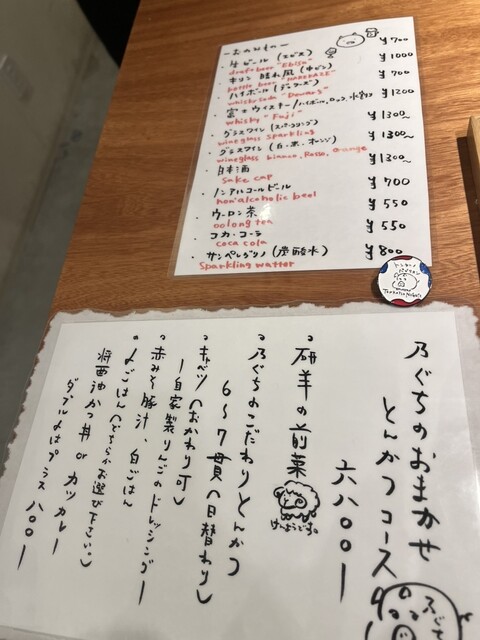 ーおのみものー
・生ビール(エビス) ¥700
draft beer "Ebisu"
・キリン 晴れ風(中ビン) ¥1000
bottle beer "HAREKAZE"
・ハイボール(デュワーズ) ¥700
whisky soda "Dewar's"
・富士ウイスキー(ハイボール,ロック,水割り) ¥1200
whisky "Fuji"
・グラスワイン(スパークリング) ¥1300~
wineglass sparkling
・グラスワイン(白・赤・オレンジ) ¥1300~
wineglass bianco, Rosso, orange
・日本酒 ¥1300~
sake cap
・ノンアルコールビール ¥700
non'alcoholic beel
・ウーロン茶 ¥550
oolong tea
・コカ・コーラ ¥550
coca cola
・サンペレグリノ(炭酸水) ¥800
Sparkling watter
乃ぐちのおまかせ
とんかつコース
六八〇〇ー
・研羊の前菜
けんようです。
・乃ぐちのこだわりとんかつ
6〜7貫(日替わり)
・キャベツ(おかわり可)
ー自家製りんごのドレッシングー
・赤みそ豚汁、白ごはん
・〆ごはん(どちらかお選び下さい。)
将西油かつ丼 or カツカレー
ダブル〆はプラス八〇〇ー